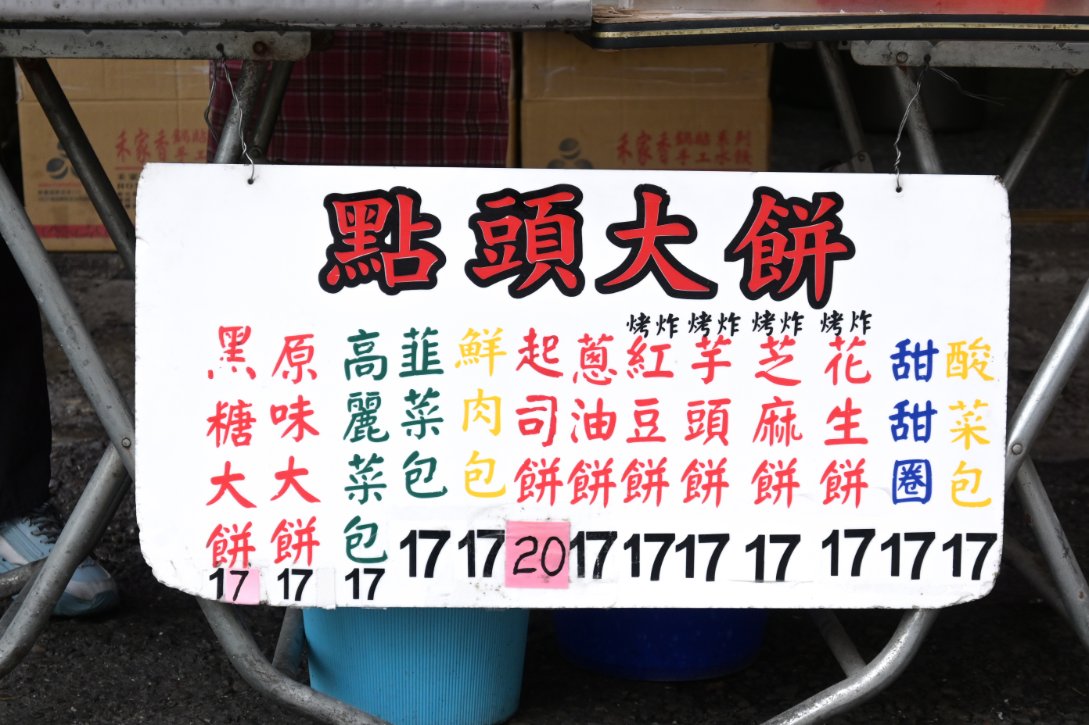 禾家香 鍋貼
手工
禾家香 鍋貼系列
手工水餃
點頭大餅
黑糖大餅 17
原味大餅 17
高麗菜包 17
韮菜包 17
鮮肉包 17
起司餅 20
蔥油餅 17
烤炸 紅豆餅 17
烤炸 芋頭餅 17
烤炸 芝麻餅 17
烤炸 花生餅 17
甜甜圈 17
酸菜包 17